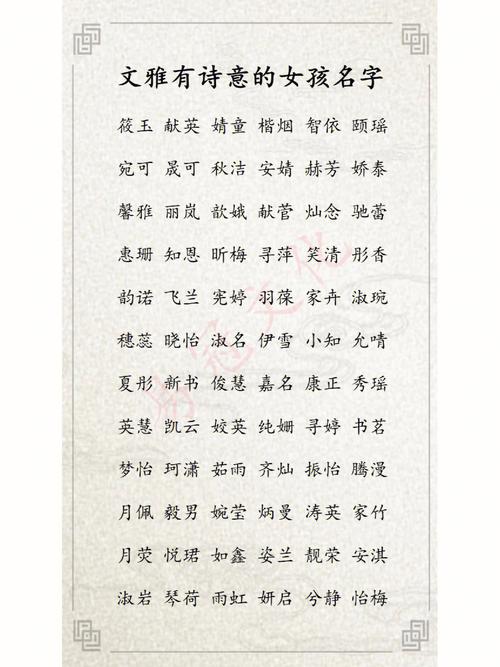 文雅有诗意的女孩名字
筱玉 献英 婧童 楷烟 智依 颐瑶
宛可 晟可 秋洁 安婧 赫芳 娇泰
馨雅 丽岚 歆娥 献菅 灿念 驰蕾
惠珊 知恩 昕梅 寻萍 笑清 彤香
韵诺 飞兰 宪婷 羽葆 家卉 淑琬
穗蕊 晓怡 淑名 伊雪 小知 允啨
夏彤 新书 俊慧 嘉名 康正 秀瑶
英慧 凯云 姣英 纯姗 寻婷 书茗
梦怡 珂潇 茹雨 齐灿 振怡 腾漫
月佩 毅男 婉莹 炳曼 涛英 家竹
月荧 悦珺 如鑫 姿兰 靓荣 安淇
淑岩 琴荷 雨虹 妍启 兮静 怡梅